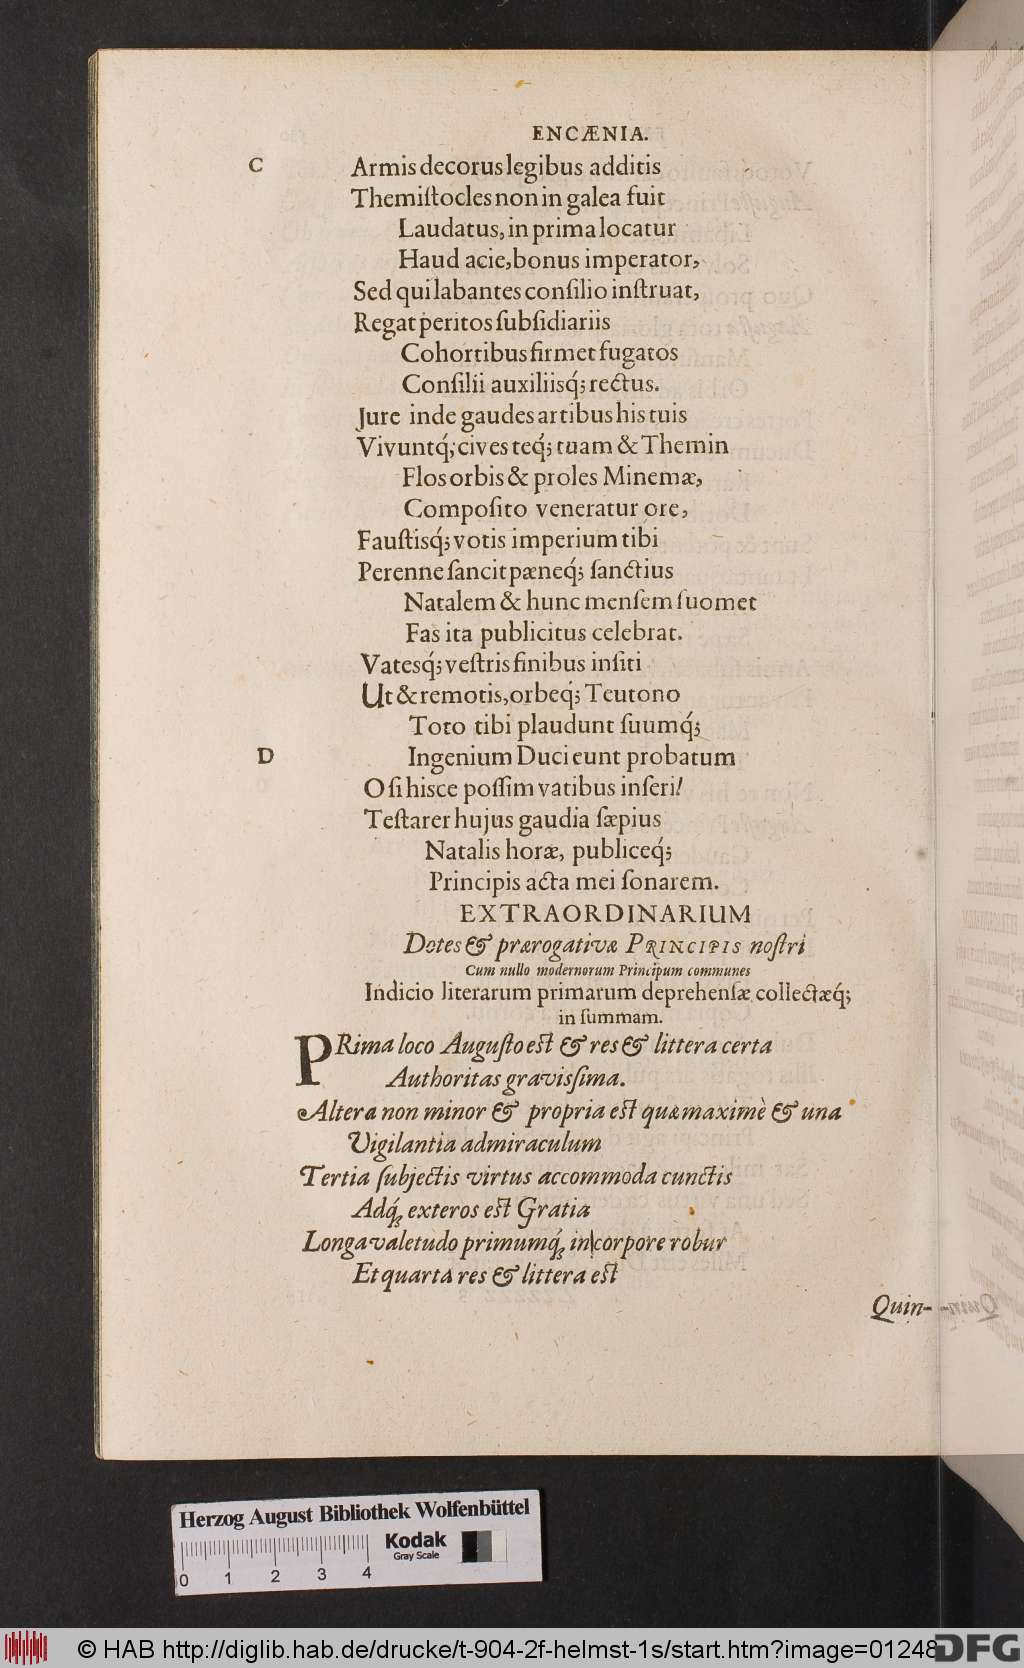 ENCÆNIA.
C Armis decorus legibus additis
Themiſtocles non in galea fuit
Laudatus, in prima locatur
Haud acie, bonus imperator,
Sed qui labantes conſilio inſtruat,
Regat peritos ſubſidiariis
Cohortibus firmet fugatos
Conſilii auxiliisq́; rectus.
Jure inde gaudes artibus his tuis
Vivuntq́; cives teq́; tuam & Themin
Flos orbis & proles Minemæ,
Compoſito veneratur ore,
Fauſtisq́; votis imperium tibi
Perenne ſancit pæneq́; ſanctius
Natalem & hunc menſem ſuomet
Fas ita publicitus celebrat.
Vatesq́; veſtris finibus inſiti
Ut & remotis, orbeq́; Teutono
Toto tibi plaudunt ſuumq́;
D Ingenium Duci eunt probatum
O ſi hisce poſſim vatibus inſeri!
Teſtarer hujus gaudia ſæpius
Natalis horæ, publiceq́;
Principis acta mei ſonarem.
EXTRAORDINARIUM
Dotes & prærogativæ PRINCIPIS noſtri
Cum nullo modernorum Principum communes
Indicio literarum primarum deprehenſæ collectæq́;
in ſummam.
PRima loco Auguſto eſt & res & littera certa
Authoritas graviſſima.
Altera non minor & propria eſt quæ maximè & una
Vigilantia admiraculum
Tertia ſubjectis virtus accommoda cunctis
Adq́; exteros eſt Gratia
Longa valetudo primumq́; in corpore robur
Et quarta res & littera eſt
Quin-
Herzog August Bibliothek Wolfenbüttel
Kodak
Gray Scale
0 1 2 3 4
© HAB http://diglib.hab.de/drucke/t-904-2f-helmst-1s/start.htm?image=01248
DFG